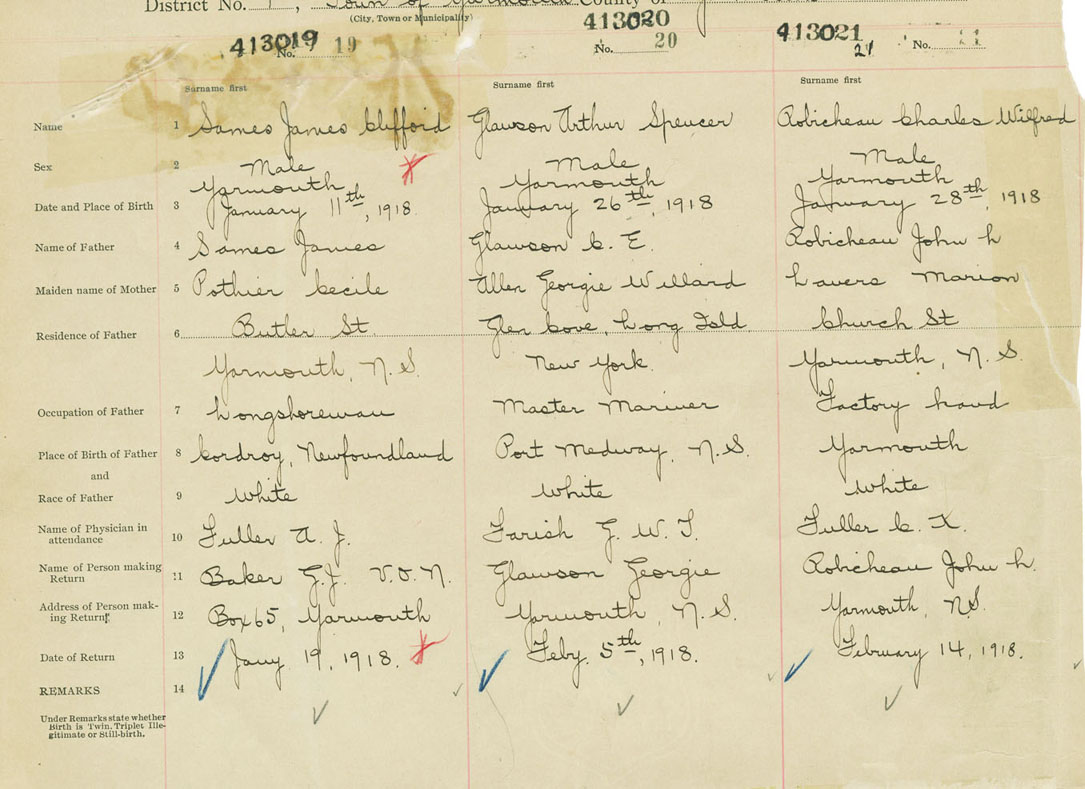 District No. 1, Town of Yarmouth County of
(City, Town or Municipality)
413019 413020 413021
No. 19 No. 20 21 No. 21
Surname first Surname first Surname first
Name 1 Sames James Clifford Glawson Arthur Spencer Robicheau Charles Wilfred
Sex 2 Male Male Male
Yarmouth Yarmouth Yarmouth
Date and Place of Birth 3 January 11th, 1918. January 26th, 1918 January 28th, 1918
Name of Father 4 Sames James Glawson C. E. Robicheau John L
Maiden name of Mother 5 Pothier Cecile Allen Georgie Willard Lavers Marion
Residence of Father 6 Butler St. Glen Cove, Long Isld Church St
Yarmouth, N.S. New York. Yarmouth, N.S.
Occupation of Father 7 Longshoreman Master Mariner Factory hand
Place of Birth of Father 8 Cordroy, Newfoundland Port Medway, N.S. Yarmouth
and
Race of Father 9 White White White
Name of Physician in
attendance 10 Fuller A. J. Farish G. W. T. Fuller L. K.
Name of Person making
Return 11 Baker G.J. V.O.N. Glawson Georgie Robicheau John L.
Address of Person mak-
ing Return 12 Box 65, Yarmouth Yarmouth, N.S. Yarmouth, N.S.
Date of Return 13 Jany 19, 1918. Feby. 5th, 1918. February 14, 1918.
REMARKS 14
Under Remarks state whether
Birth is Twin, Triplet Ille-
gitimate or Still-birth.